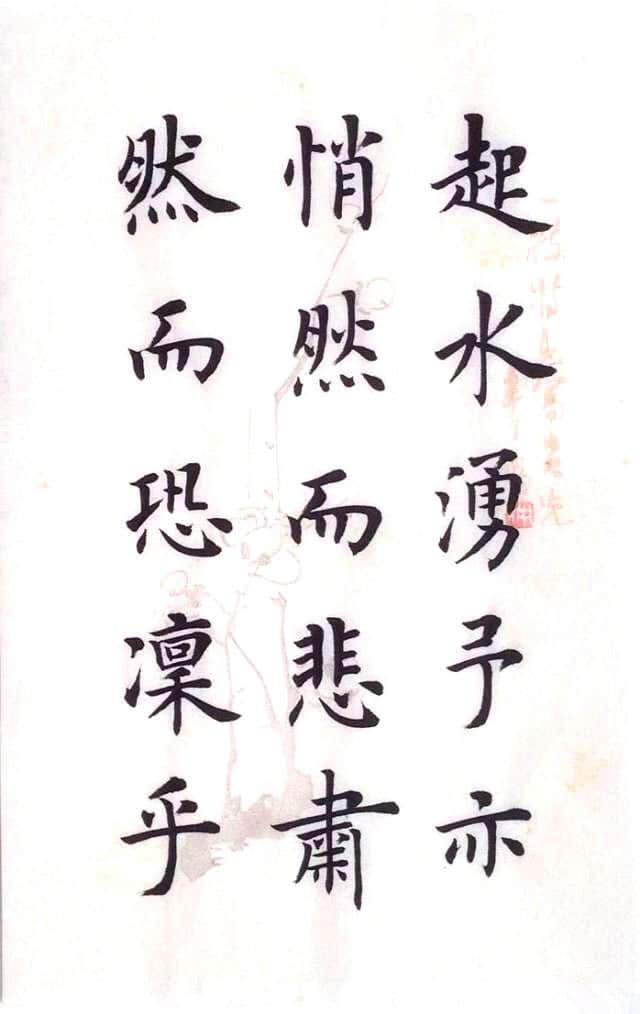 起水湧予亦
悄然而悲肅
然而恐凜乎